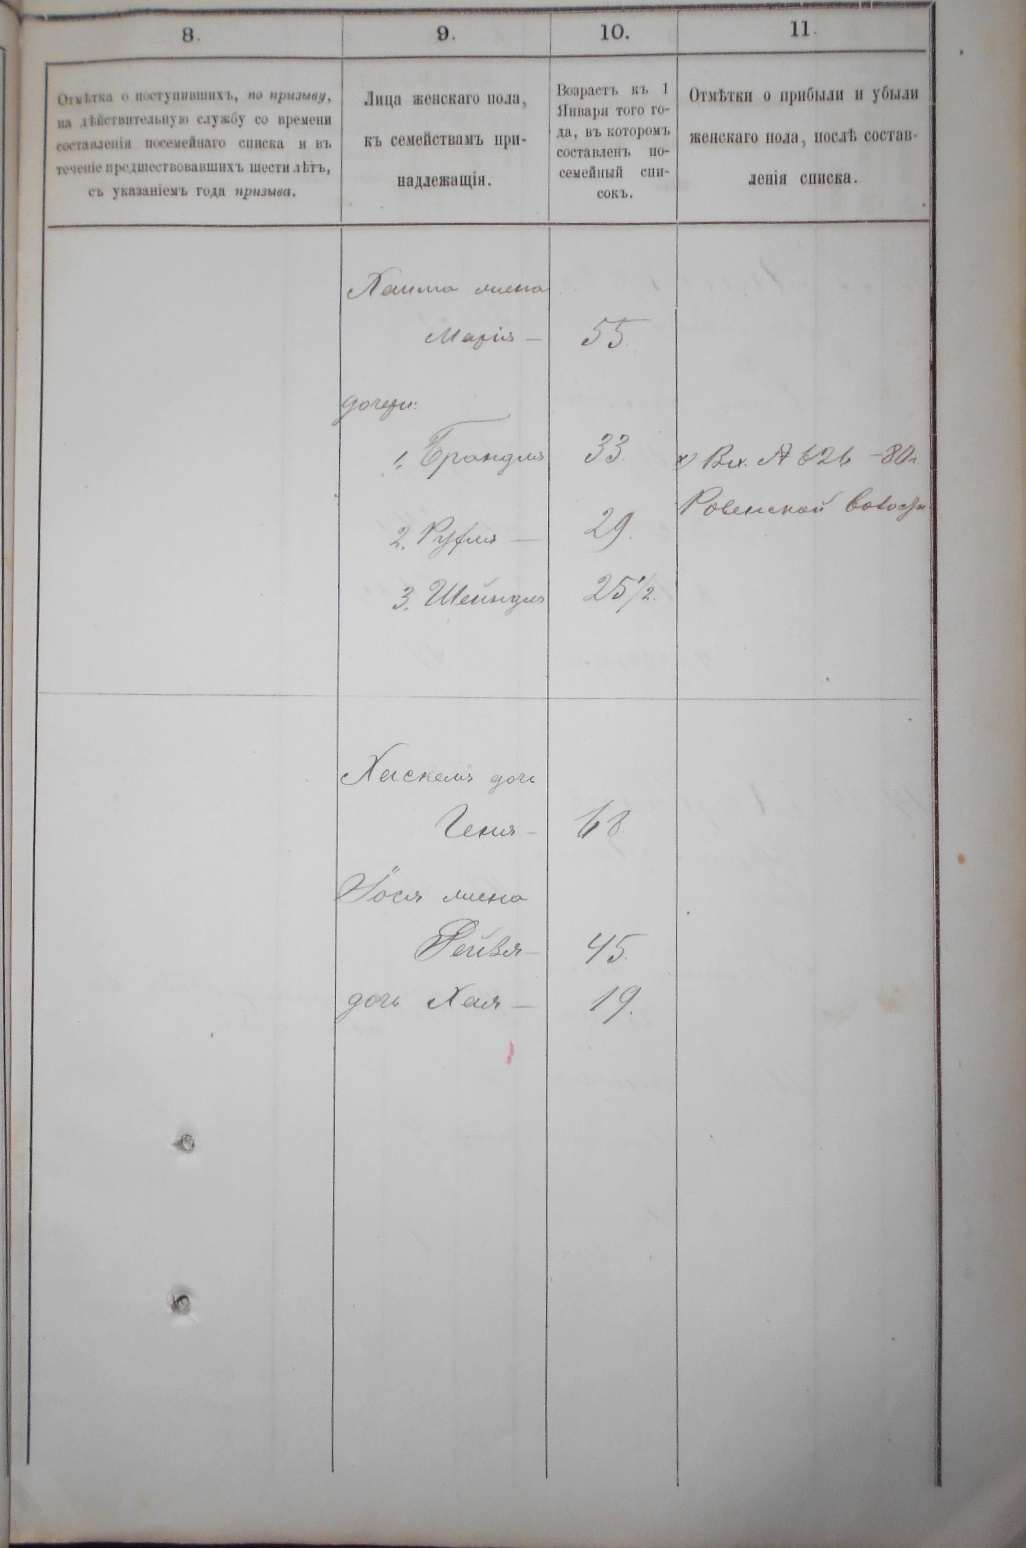 8.
9.
10.
11.
Отмѣтка о поступившихъ, по призыву,
на дѣйствительную службу со времени
составленія посемейнаго списка и въ
теченіе предшествовавшихъ шести лѣтъ,
съ указаніемъ года призыва.
Лица женскаго пола,
къ семействамъ при-
надлежащія.
Возрастъ къ 1
Января того го-
да, въ которомъ
составленъ по-
семейный спи-
сокъ.
Отмѣтки о прибыли и убыли
женскаго пола, послѣ состав-
ленія списка.
Хаима жена
Марія — 55.
дочери:
1. Брандля 33.
2. Руфля — 29.
3. Шейндля 25½.
Вх. № 626 — 80г.
Ровенской
Хаскеля дочь
Геня — 68.
Іося жена
Рейзя — 45.
дочь Хая — 19.